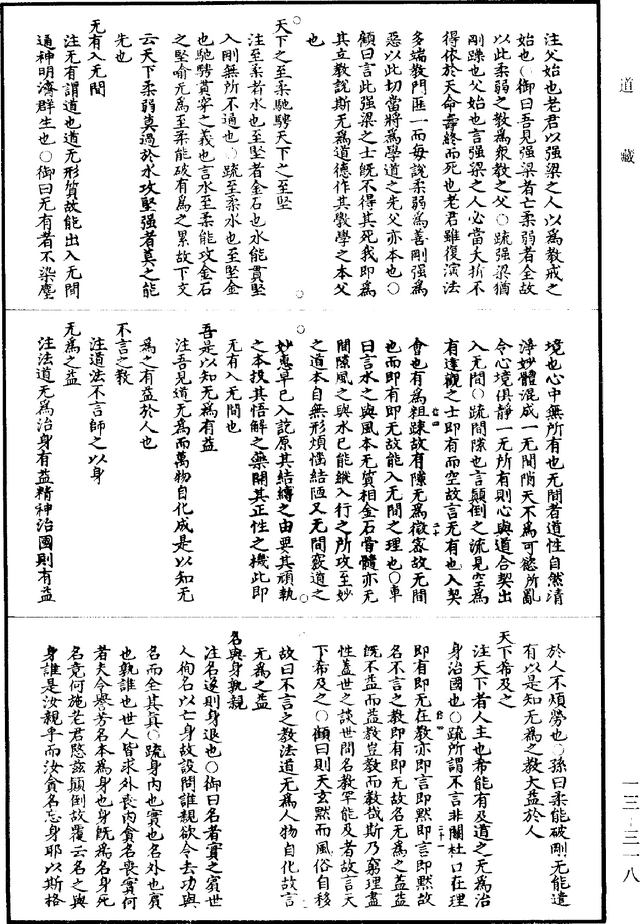 道藏
注父始也老君以強梁之人以爲教戒之
始也○御曰吾見強梁者亡柔弱者全故
以此柔弱之教爲衆教之父○疏強梁猶
剛躁也父始也言強梁之人必當夭折不
得依於天命壽終而死也老君雖復演法
多端教門匪一而每說柔弱爲善剛強爲
惡以此切當將爲學道之先父亦本也○
顧曰言此強梁之士既不得其死我即爲
其立教說斯无爲道德作其教學之本父
也
天下之至柔馳騁天下之至堅
注至柔者水也至堅者金石也水能貫堅
入剛無所不通也○疏至柔水也至堅金
也馳騁貫穿之義也言水至柔能攻金石
之堅喻无爲至柔能破有爲之累故下文
云天下柔弱莫過於水攻堅強者莫之能
先也
无有入无間
注无有謂道也道无形質故能出入无間
通神明濟群生也○御曰无有者不染塵
境也心中無所有也无間者道性自然清
淨妙體混成一无間隙天不爲可慾所亂
令心境俱靜一无所有則心與道合契出
入无間○疏間隙也言顛倒之流見空爲
有達觀之士即有而空故言无有也入契
會也有爲粗踈故有隙无爲微密故无間
也而即有即无故能入无間之理也○車
曰言水之與風本无質相金石骨髓亦无
間隙風之與水已能縱入行之所攻至妙
之道本自無形煩惱結陋又无間竅道之
妙惠早已入訖原其結縛之由要其頑執
之本投其悟解之藥開其正性之機此即
无有入无間也
吾是以知无爲有益
注吾見道无爲而萬物自化成是以知无
爲之有益於人也
不言之教
注道法不言師之以身
无爲之益
注法道无爲治身有益精神治國則有益
於人不煩勞也○孫曰柔能破剛无能遣
有以是知无爲之教大益於人
天下希及之
注天下者人主也希能有及道之无爲治
身治國也○疏所謂不言非關杜口在理
即有即无在教亦即言即默即言即默故
名不言之教即有即无故名无爲之益益
既不益而益教豈教而教哉斯乃窮理盡
性蓋世之談世間名教罕能及者故言天
下希及之○顧曰則天玄默而風俗自移
故曰不言之教法道无爲人物自化故言
无爲之益
名與身孰親
注名遂則身退也○御曰名者實之賓世
人徇名以亡身故設問誰親欲令去功與
名而全其真○疏身內也實也名外也賓
也孰誰也世人皆求外喪內貪名喪實何
者夫令譽芳名本爲身也身既爲名身死
名竟何施老君愍茲顛倒故覆云名之與
身誰是汝親乎而汝貪名忘身耶以斯格
一三-三一八